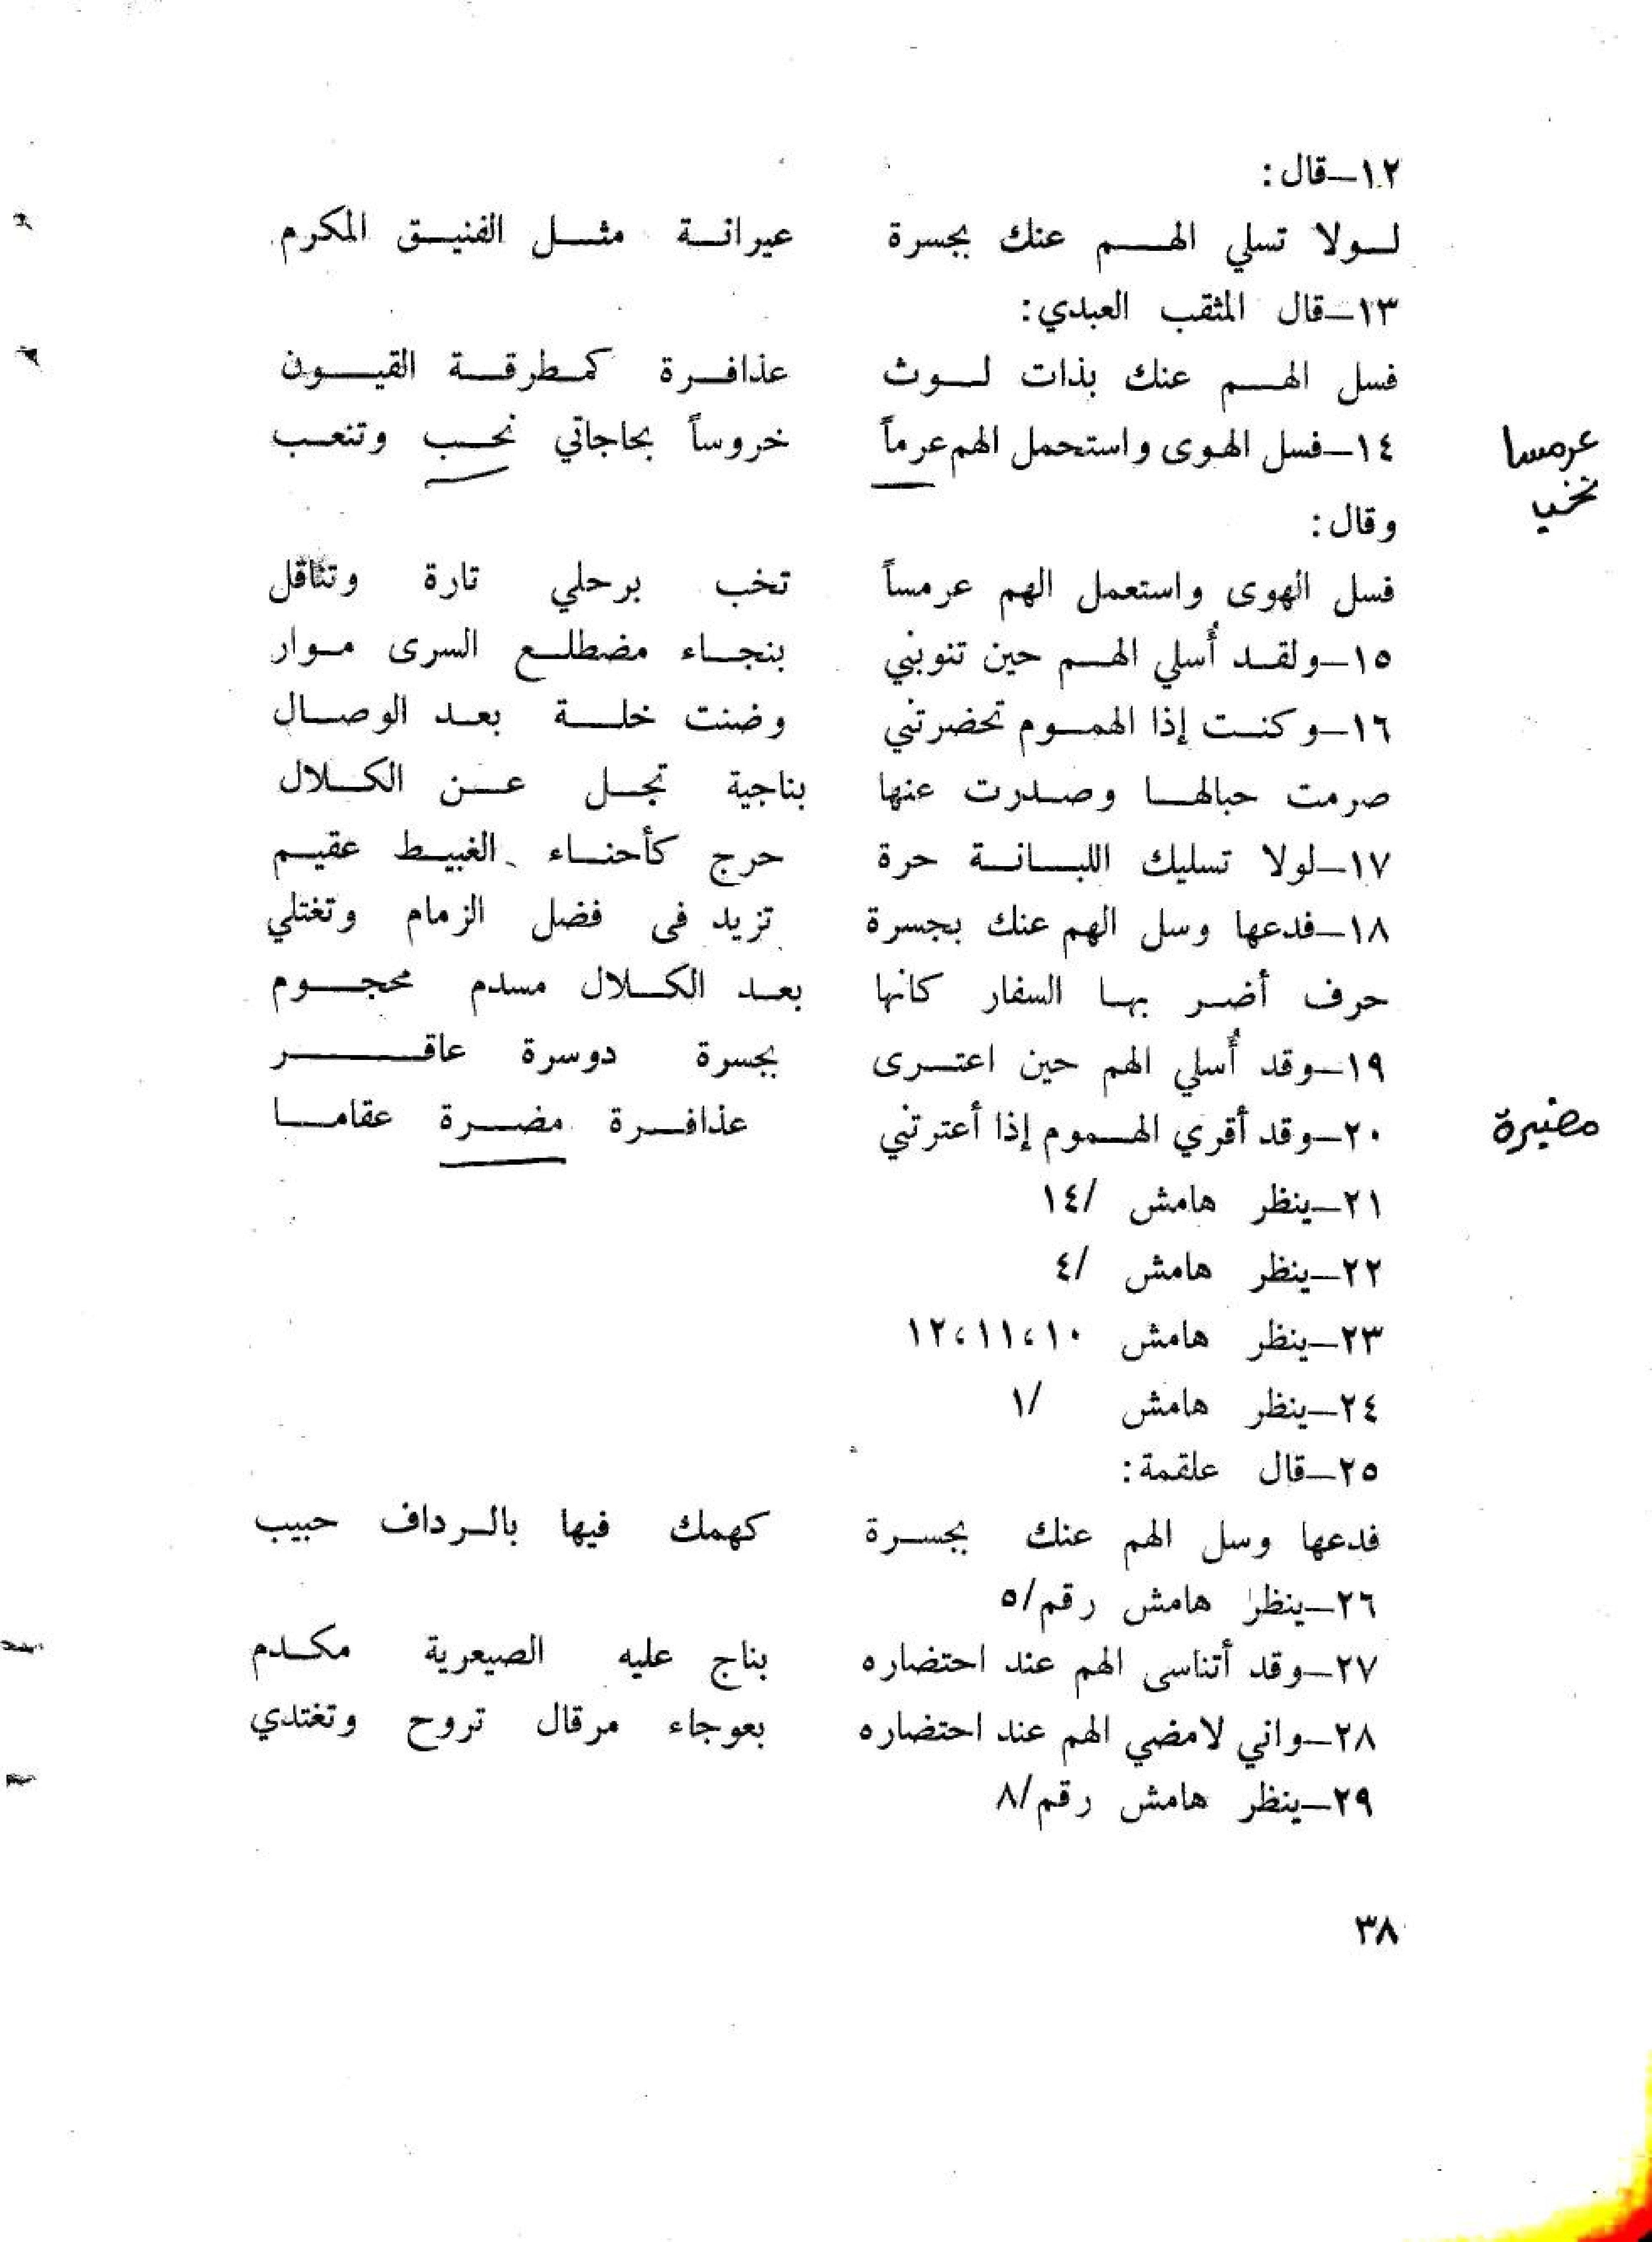 ١٢ــقال:
لـولا تسلي الهـم عنك بجسرة عيرانـة مثـل الفنيـق المكرم
١٣ــقال المثقب العبدي:
فسل الهـم عنك بذات لـوث عذافـرة كمـطرقـة القيـون
عرمسا
١٤ــفسل الهوى واستحمل الهم عرماً خروساً بحاجاتي نحـب وتنعـب
تخب
وقال:
فسل الهوى واستعمل الهم عرمساً تخب برحلي تارة وتثاقل
١٥ــولقـد أُسلي الهـم حين تنوبني بنجـاء مضطلـع السرى مـوار
١٦ــوكنـت إذا الهمـوم تحضرتني وضنت خلـة بعـد الوصـال
صرمت حبالهـا وصـدرت عنها بناجية تجـل عـن الكـلال
١٧ــلولا تسليك اللبـانـة حرة حرج كأحنـاء الغبيـط عقيـم
١٨ــفدعها وسل الهم عنك بجسرة تزيد فى فضل الزمام وتغتلي
حرف أضـر بهـا السفار كانها بعـد الكـلال مسدم محجـوم
١٩ــوقد أُسلي الهم حين اعتـرى بجسرة دوسرة عاقـر
٢٠ــوقد أقري الهـموم إذا أعترتني عذافـرة مضـرة عقامـا
مضبرة
٢١ــينظر هامش /١٤
٢٢ــينظر هامش /٤
٢٣ــينظر هامش ١٠،١١،١٢
٢٤ــينظر هامش /١
٢٥ــقال علقمة:
فدعها وسل الهم عنك بجسـرة كهمك فيها بالـرداف حبيب
٢٦ــينظر هامش رقم/٥
٢٧ــوقد أتناسى الهم عند احتضاره بناج عليه الصيعرية مكـدم
٢٨ــواني لامضي الهم عند احتضاره بعوجاء مرقال تروح وتغتدي
٢٩ــينظر هامش رقم/٨
٣٨